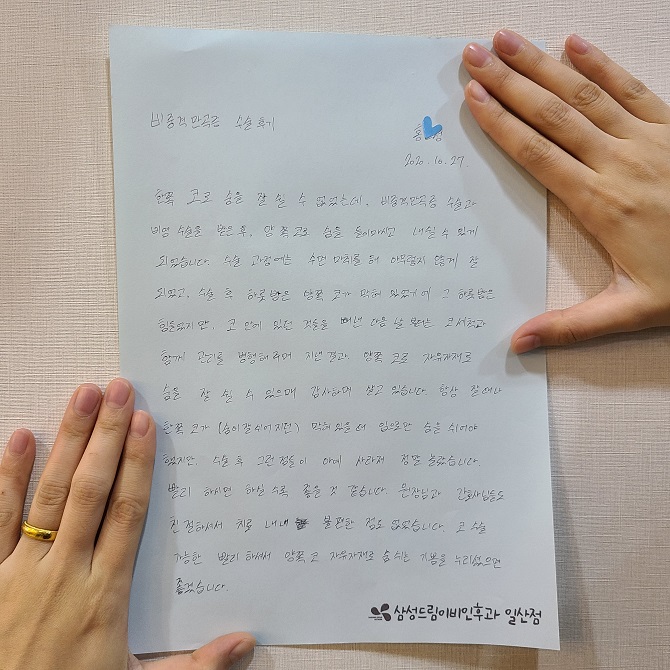 비중격만곡증 수술 후기
홍 성
2020. 10. 27.
한쪽 코로 숨을 잘 쉴 수 없었는데, 비중격만곡증 수술과
비염 수술을 받은 후, 양쪽 코로 숨을 들이마시고 내쉴 수 있게
되었습니다. 수술 과정에는 수면 마취를 해 아무렇지 않게 잘
되었고, 수술 후 하룻밤은 양쪽 코가 막혀 있었기에 그 하룻밤은
힘들었지만, 코 안에 있던 것들을 빼낸 다음 날 부터는 코세척과
함께 관리를 병행해주며 지낸 결과 양쪽 코로 자유자재로
숨을 잘 쉴 수 있으며 감사하며 살고 있습니다. 항상 잘때나
한쪽 코가 (숨이 잘 쉬어지던) 막혀있을 때 입으로만 숨을 쉬어야
했지만, 수술 후 그런 점들이 아예 사라져 정말 놀랐습니다.
빨리 하시면 하실 수록 좋을 것 같습니다. 원장님과 간호사님들도
친절하셔서 치료 내내 불편한 점도 없었습니다. 코 수술
가능한 빨리 하셔서 양쪽 코 자유자재로 숨 쉬는 기쁨을 누리셨으면
좋겠습니다.
삼성드림이비인후과 일산점